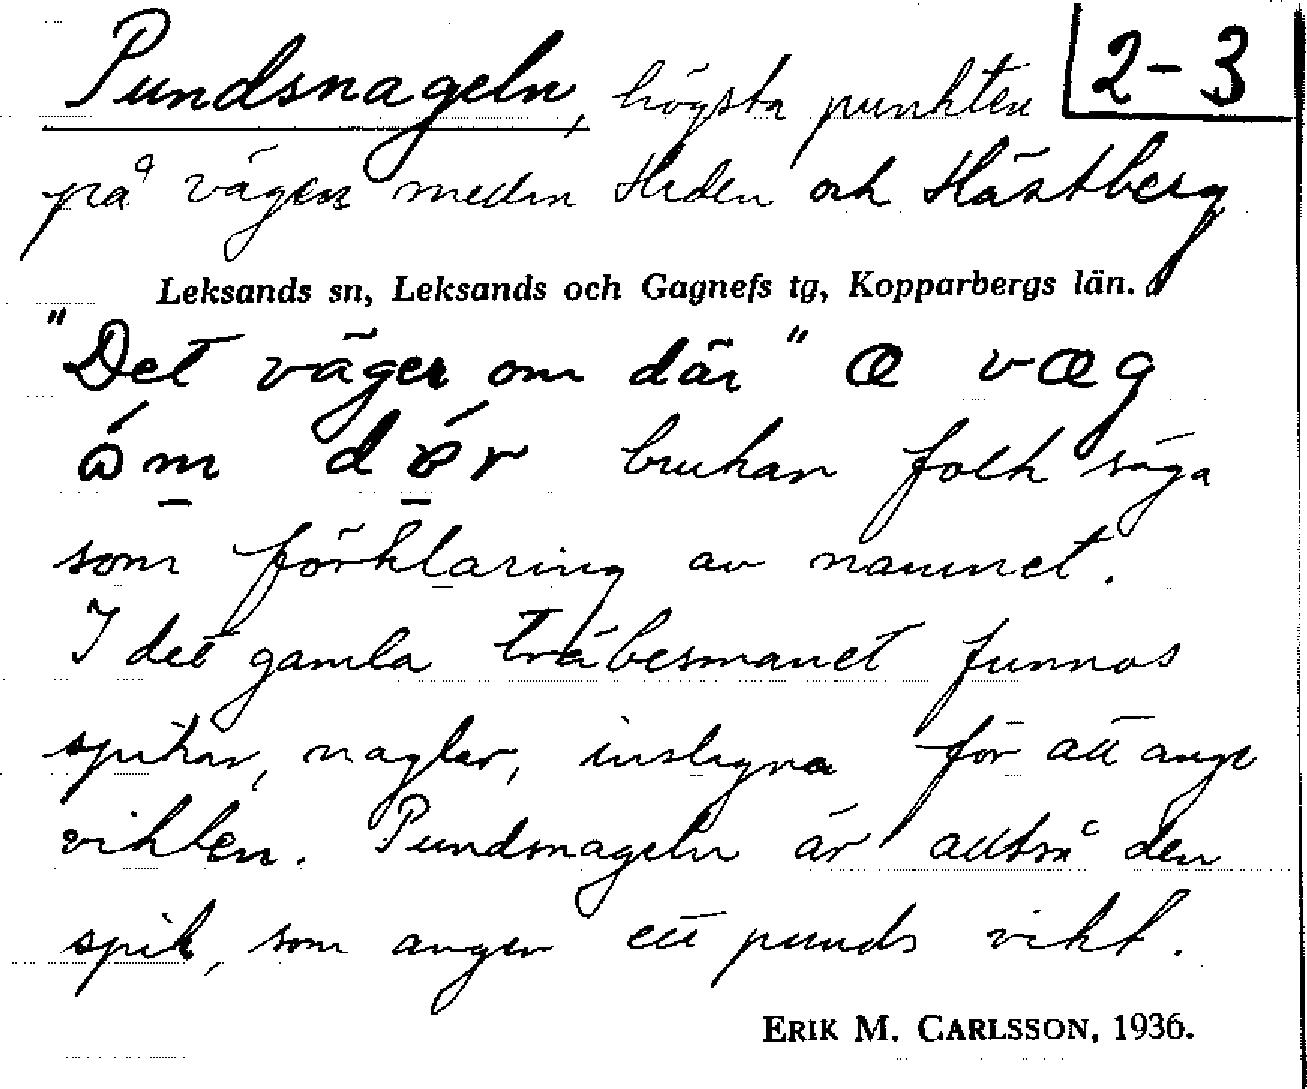 Pundsnageln, högsta punkten 2-3
på vägen mellan Heden och Hästberg
Leksands sn, Leksands och Gagnefs tg, Kopparbergs län.
"Det väger om där" æ væg
brukar folk säga
som förklaring av namnet.
I det gamla träbesmanet funnos
spikar, naglar, inslagna för att ange
vikten. Pundsnageln är alltså den
spik, som anger ett punds vikt.
ERIK M. CARLSSON, 1936.